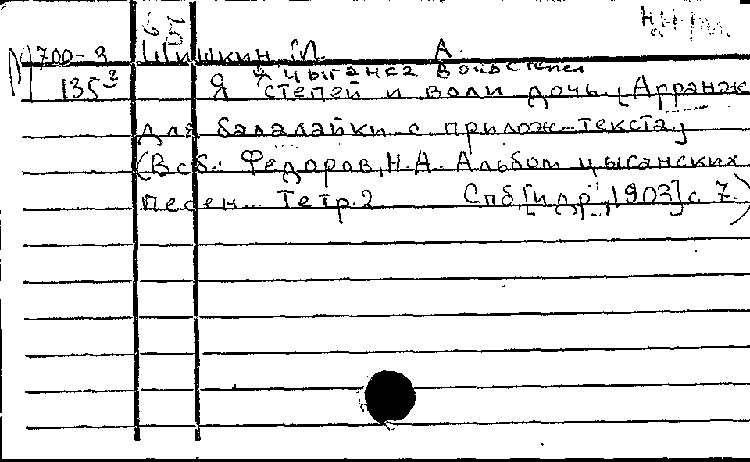 65
М 700-3 Шишкин, М. А.
135² Я цыганка
степей и воли дочь. [Арранж
для балалайки с прилож. текста]
(В сб.: Федоров, Н.А. Альбом цыганских
песен. Тетр. 2 Спб [и др., 1903] с 7.)